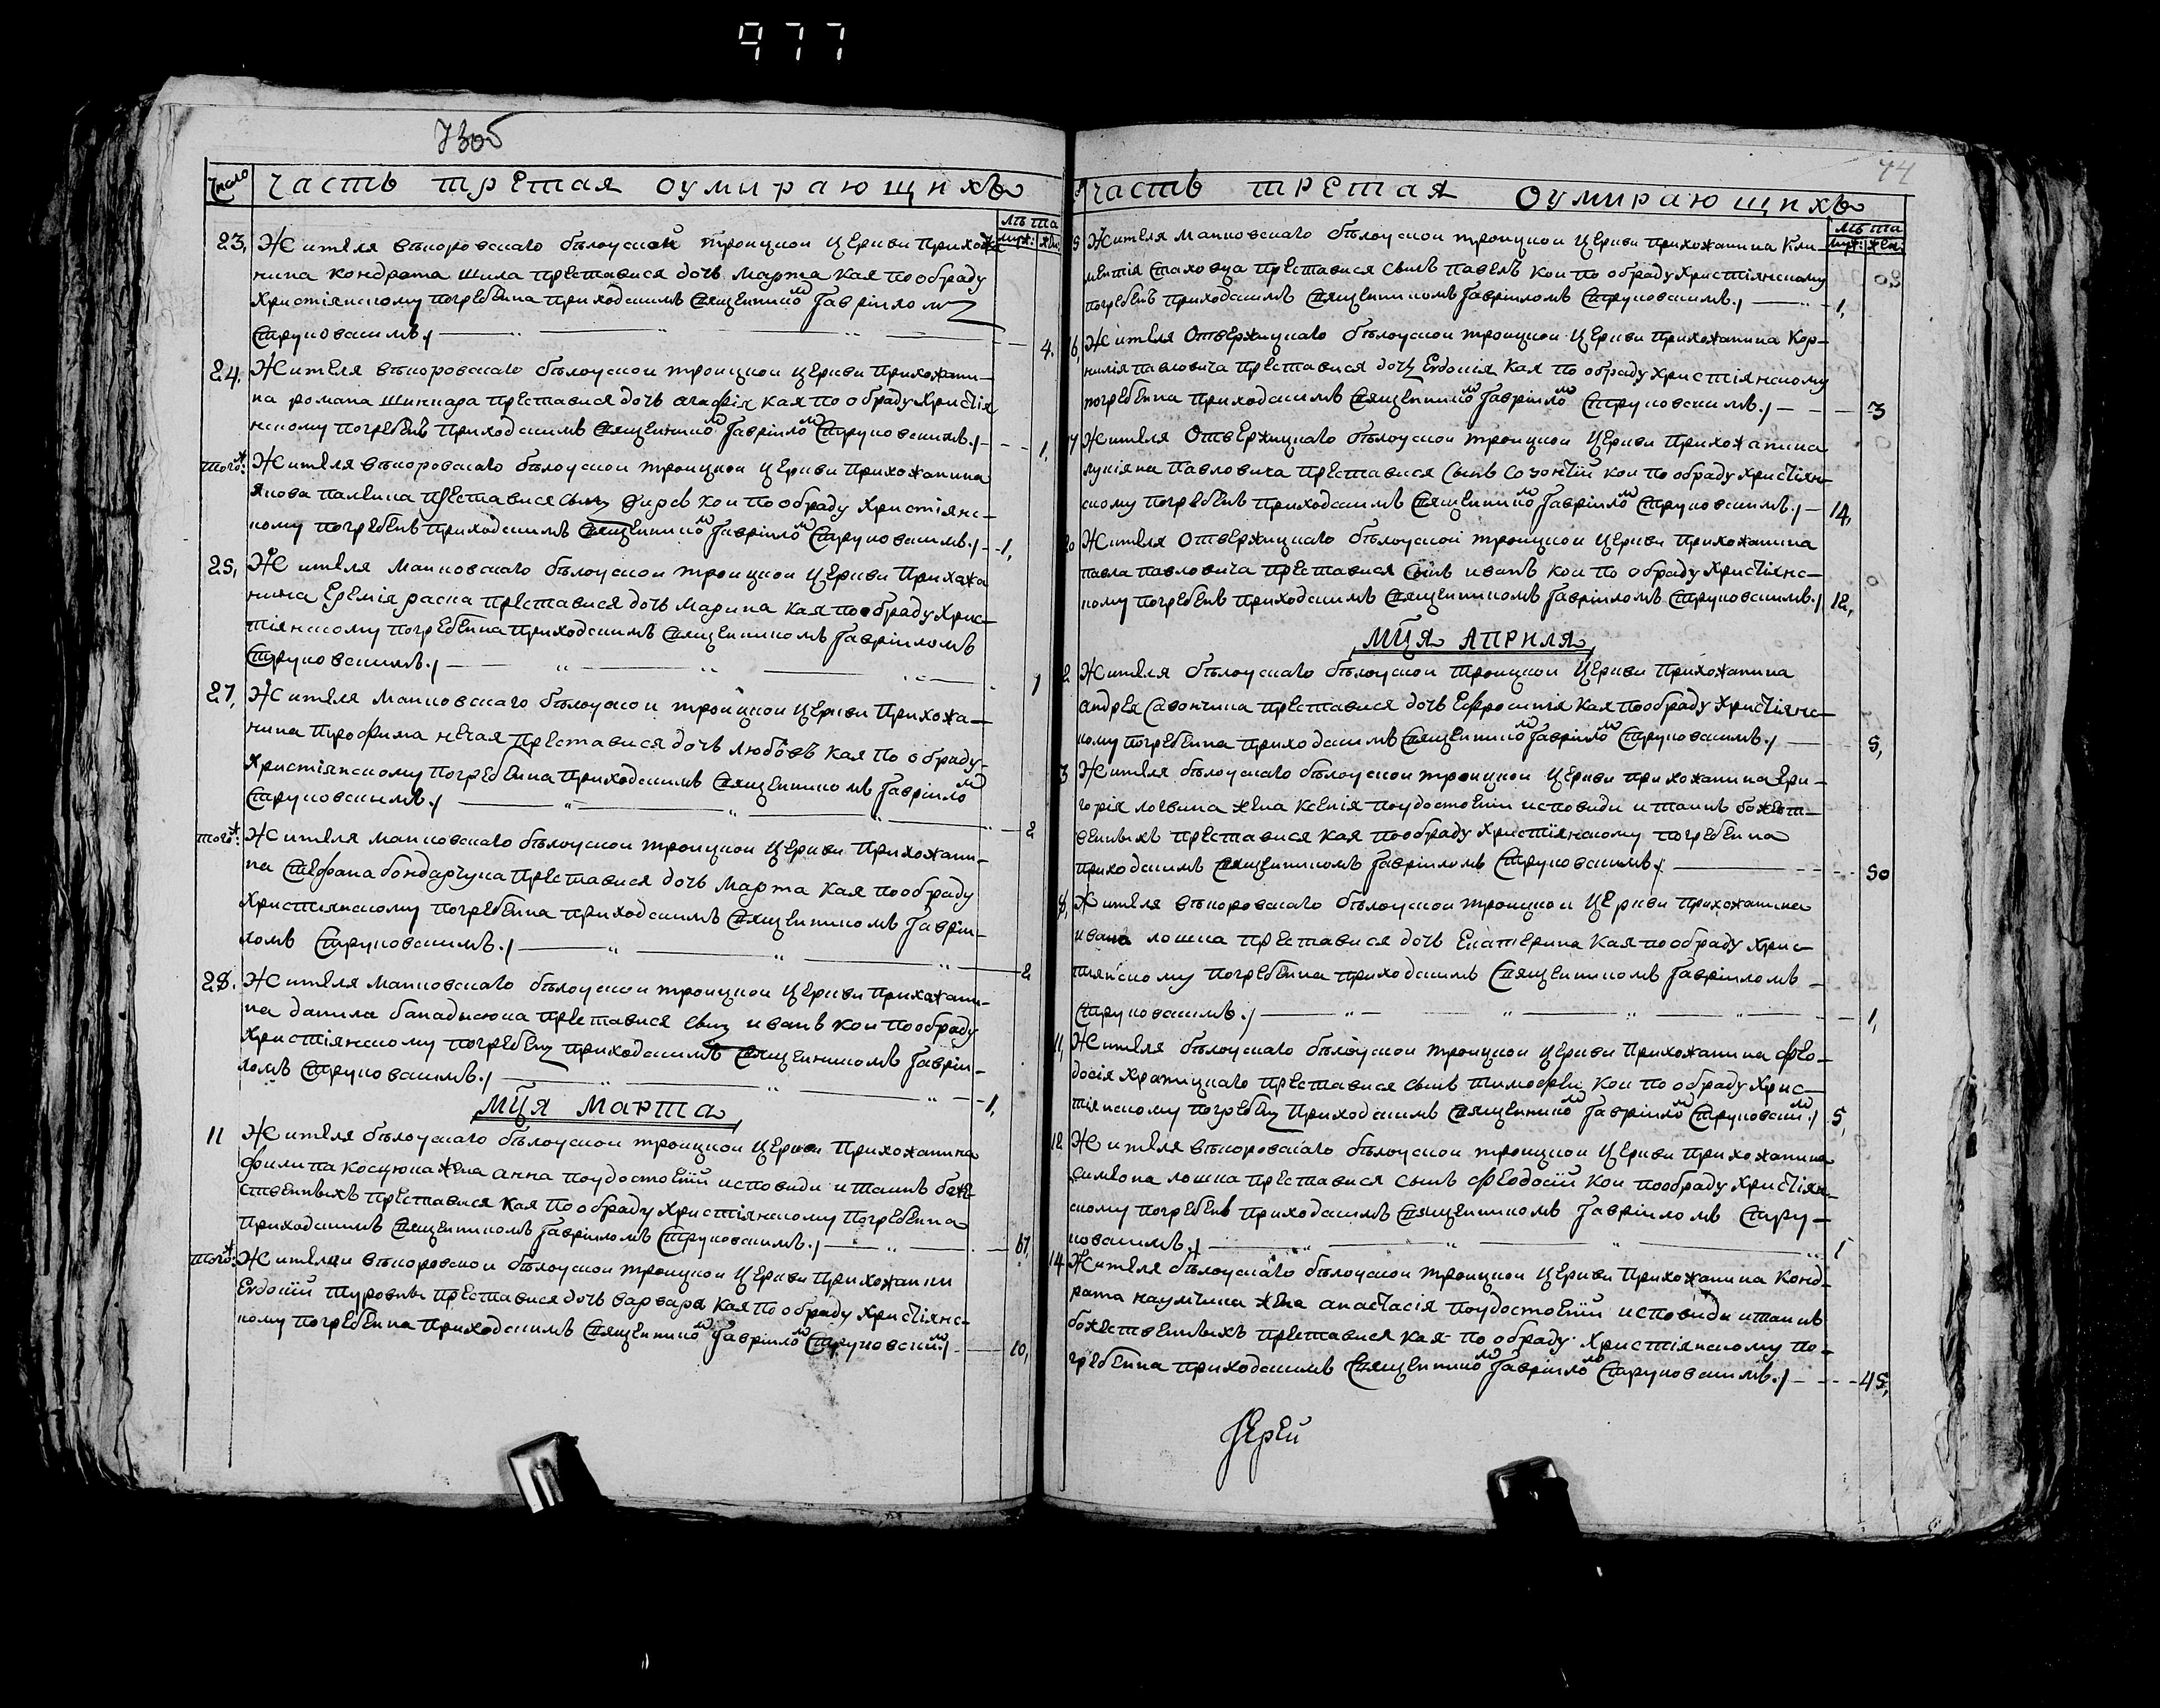 977
73об
Число Часть третая оумирающихъ
лѣта
муж: жен:
23, Жителя вѣкоровскаго бѣлоускои троицкои церкви прихожа
нина кондрата шила преставися дочь марта кая по обряду
христіянскому погребена приходскимъ священико Гавріило
Струковскимъ./ 4.
24, Жителя вѣкоровскаго бѣлоускои троицкои церкви прихожани-
на романа шинкара преставися дочь агафія кая по обряду христія
нскому погребенъ приходскимъ священнико Гавріило Струковскимъ./ 1,
тогож: Жителя вѣкоровскаго бѣлоускои троицкои церкви прихожанина
якова пакина преставися сынъ фирсъ кои по обряду христіянс-
кому погребенъ приходскимъ священнико Гавріило Струковскимъ./ 1,
25, Жителя маковскаго бѣлоускои троицкои церкви прихажа
нина Еремія раска преставися дочь марина кая по обряду хрис-
тіянскому погребена приходскимъ священникомъ Гавріиломъ
Струковскимъ./ 1
27, Жителя маковскаго бѣлоускои троицкои церкви прихожа-
нина трофима нечая преставися дочь любовъ кая по обряду
христіянскому погребена приходскимъ священникомъ Гавріило
Струковскимъ./ 2
тогож: Жителя маковскаго бѣлоускои троицкои церкви прихожани-
на стефана бондарчука преставися дочь марта кая по обряду
християнскому погребена приходскимъ священникомъ Гавріи-
ломъ Струковскимъ./ 2
28. Жителя маковскаго бѣлоускои троицкои церкви прихажани-
на данила банадысюка преставися сынъ иванъ кои по обряду
христіянскому погребенъ приходскимъ священникомъ Гавріи-
ломъ Струковскимъ./ 1,
мця марта
11 Жителя бѣлоускаго бѣлоускои троицкои церкви прихожанина
филипа косцюка жена анна поудостоеніи исповиди и таинъ боже-
ственныхъ преставися кая по обряду христіянскому погребенна
приходскимъ священникомъ Гавріиломъ Струковскимъ./ 67
тогож: Жителки вѣкоровскои бѣлоускои троицкои церкви прихожанки
Евдокіи туровны преставися дочь варвара кая по обряду христіянс-
кому погребенна приходскимъ священнико Гавріило Струковски./ 10,
74
Часть третая оумирающихъ
лѣта
муж: жен:
Жителя маковскаго бѣлоускои троицкои церкви прихожанина кли-
ментія стаховца преставися сынъ павелъ кои по обряду христіянскому
погребенъ приходскимъ священникомъ Гавріиломъ Струковскимъ./ 1,
6, Жителя Отвержицкаго бѣлоускои троицкои церкви прихожанина кор-
нилія павловича преставися дочь Евдокія кая по обряду христіянскому
погребенна приходскимъ священнико Гавріило Струковскимъ./ 3
Жителя Отвержицкаго бѣлоускои троицкои церкви прихожанина
лукіяна Павловича преставися сынъ Созонтій кои по обряду христіян-
скому погребенъ приходскимъ священнико Гавріило Струковскимъ./ 14,
20 Жителя Отвержицкаго бѣлоускои троицкои церкви прихожанина
павла павловича преставися сынъ иванъ кои по обряду христіянс-
кому погребенъ приходскимъ священникомъ Гавріиломъ Струковскимъ./ 12,
мця априля
2 Жителя бѣлоускаго бѣлоускои троицкои церкви прихожанина
андрея Савончика преставися дочь Ефросинія кая по обряду христіянс-
кому погребенна приходскимъ священнико Гавріило Струковскимъ./ 5,
3 Жителя бѣлоускаго бѣлоускои троицкои церкви прихожанина гри-
горія логвина жена ксенія поудостоеніи исповиди и таинъ божест-
венныхъ преставися кая по обряду христіянскому погребенна
приходскимъ священникомъ Гавріиломъ Струковскимъ./ 50
8, Жителя вѣкоровскаго бѣлоускои троицкои церкви прихожанина
ивана лошка преставися дочь Екатерина кая по обряду хрис-
тиянскому погребенна приходскимъ священникомъ Гавріиломъ
Струковскимъ./ 1,
11, Жителя бѣлоускаго бѣлоускои троицкои церкви прихожанина фео-
досія храпицкаго преставися сынъ тимофеи кои по обряду хрис-
тіянскому погребенъ приходскимъ священнико Гавріило Струковски./ 5,
12 Жителя вѣкоровскаго бѣлоускои троицкои церкви прихожанина
симеона лошка преставися сынъ феодосій кои по обряду христіян-
скому погребенъ приходскимъ священникомъ Гавріиломъ Стру-
ковскимъ./ 1
14 Жителя бѣлоускаго бѣлоускои троицкои церкви прихожанина конд-
рата наумчика жена анастасія поудостоеніи исповиди и таинъ
божественныхъ преставися кая по обряду христіянскому по-
гребенна приходскимъ священнико Гавріило Струковскимъ./ 45,
Іерей